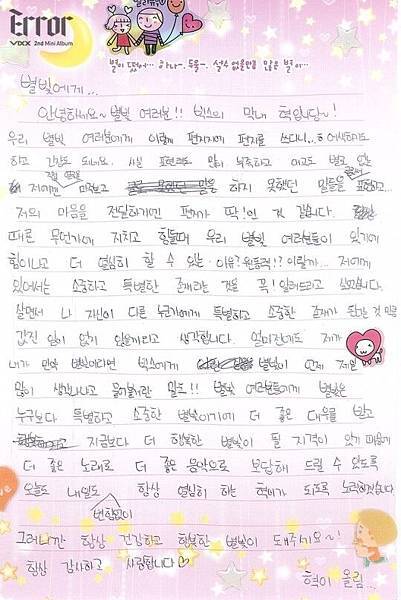 Error
VIXX 2nd Mini Album
별이 떴어... 하나. 둘.. 셀수 없을만큼 많은 별이...
별빛에게...
안녕하세요~ 별빛 여러분!! 빅스의 막내 혁입니당~!
우리 별빛 여러분에게 이렇게 편지지에 편지를 쓰다니..
하고 긴장도 되네요. 사실 표현력도 많이 부족하고 애교도 별로 없는
저이지만 하지 못했던 말들을 표현하고...
저의 마음을 전달하기엔 편지가 딱!인 것 같습니다.
때론 무언가에 지치고 힘들때 우리 별빛 여러분들이 있기에
힘이나고 더 열심히 할 수 있는 이유? 원동력!? 이랄까... 저에게
있어서는 소중하고 특별한 존재라는 것을 꼭! 알려드리고 싶었습니다.
살면서 나 자신이 다른 누군가에게 특별하고 소중한 존재가 된다는 것 만큼
값진 일이 없지 않을까라고 생각합니다. 얼마전에도 제가
내가 만약 별빛이라면 빅스에게 별빛이 언제 제일
많이 생각나냐고 물어볼거란 말도!! 별빛 여러분들에게 별빛은
누구보다 특별하고 소중한 별빛이기에 더 좋은 대우를 받고
지금보다 더 행복한 별빛이 될 자격이 있기 때문에
더 좋은 노래로 더 좋은 음악으로 보답해 드릴 수 있도록
오늘도 내일도 항상 열심히 하는 혁이가 되도록 노력하겠습니다.
변함없이
그러니깐 항상 건강하고 행복한 별빛이 돼주세요~!
항상 감사하고 사랑합니다♡
혁이 올림...